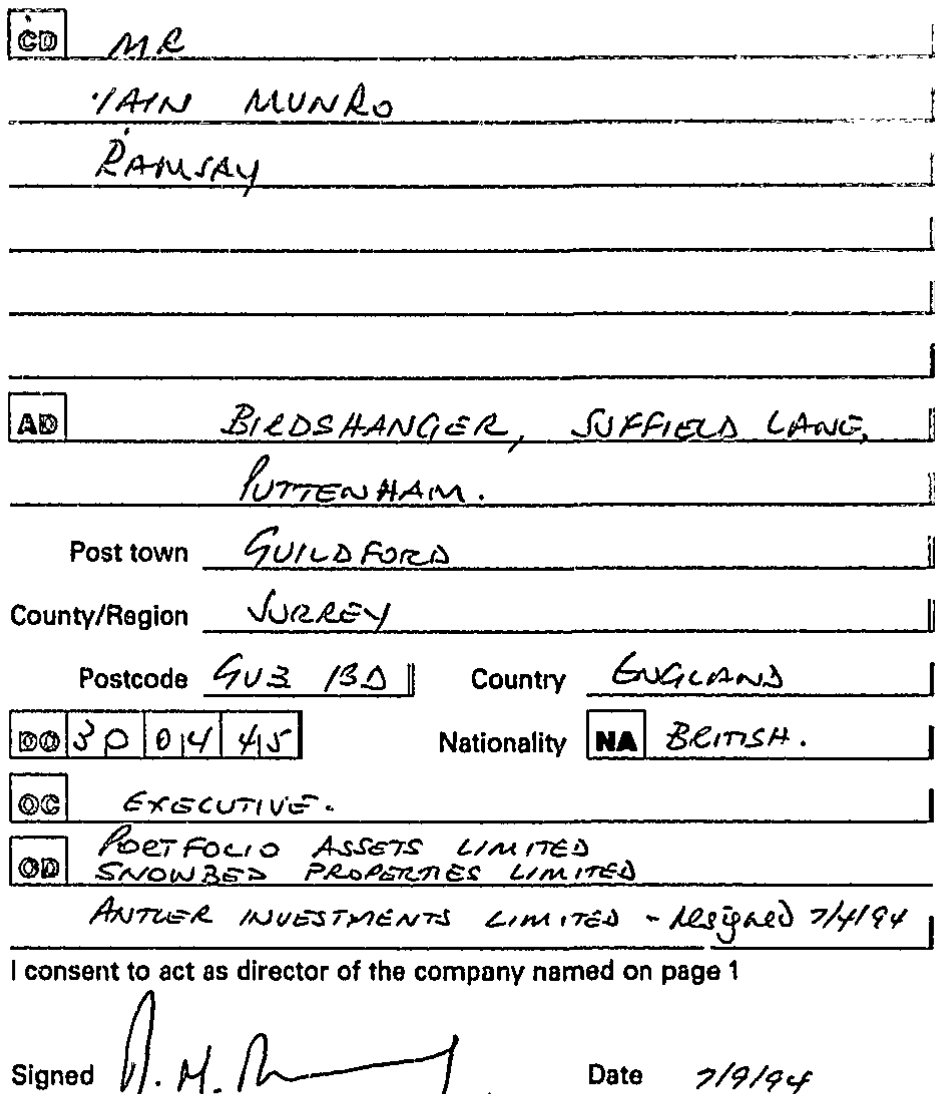 CD MR
IAIN MUNRO
RAMSAY
AD BIRDSHANGER, SUFFIELD LANE,
PUTTENHAM.
Post town GUILDFORD
County/Region SURREY
Postcode GU3 1BD Country ENGLAND
DO 30 04 45 Nationality NA BRITISH.
OC EXECUTIVE.
OD PORTFOLIO ASSETS LIMITED
SNOWBED PROPERTIES LIMITED
ANTLER INVESTMENTS LIMITED - resigned 7/4/94
I consent to act as director of the company named on page 1
Signed Date 7/9/94